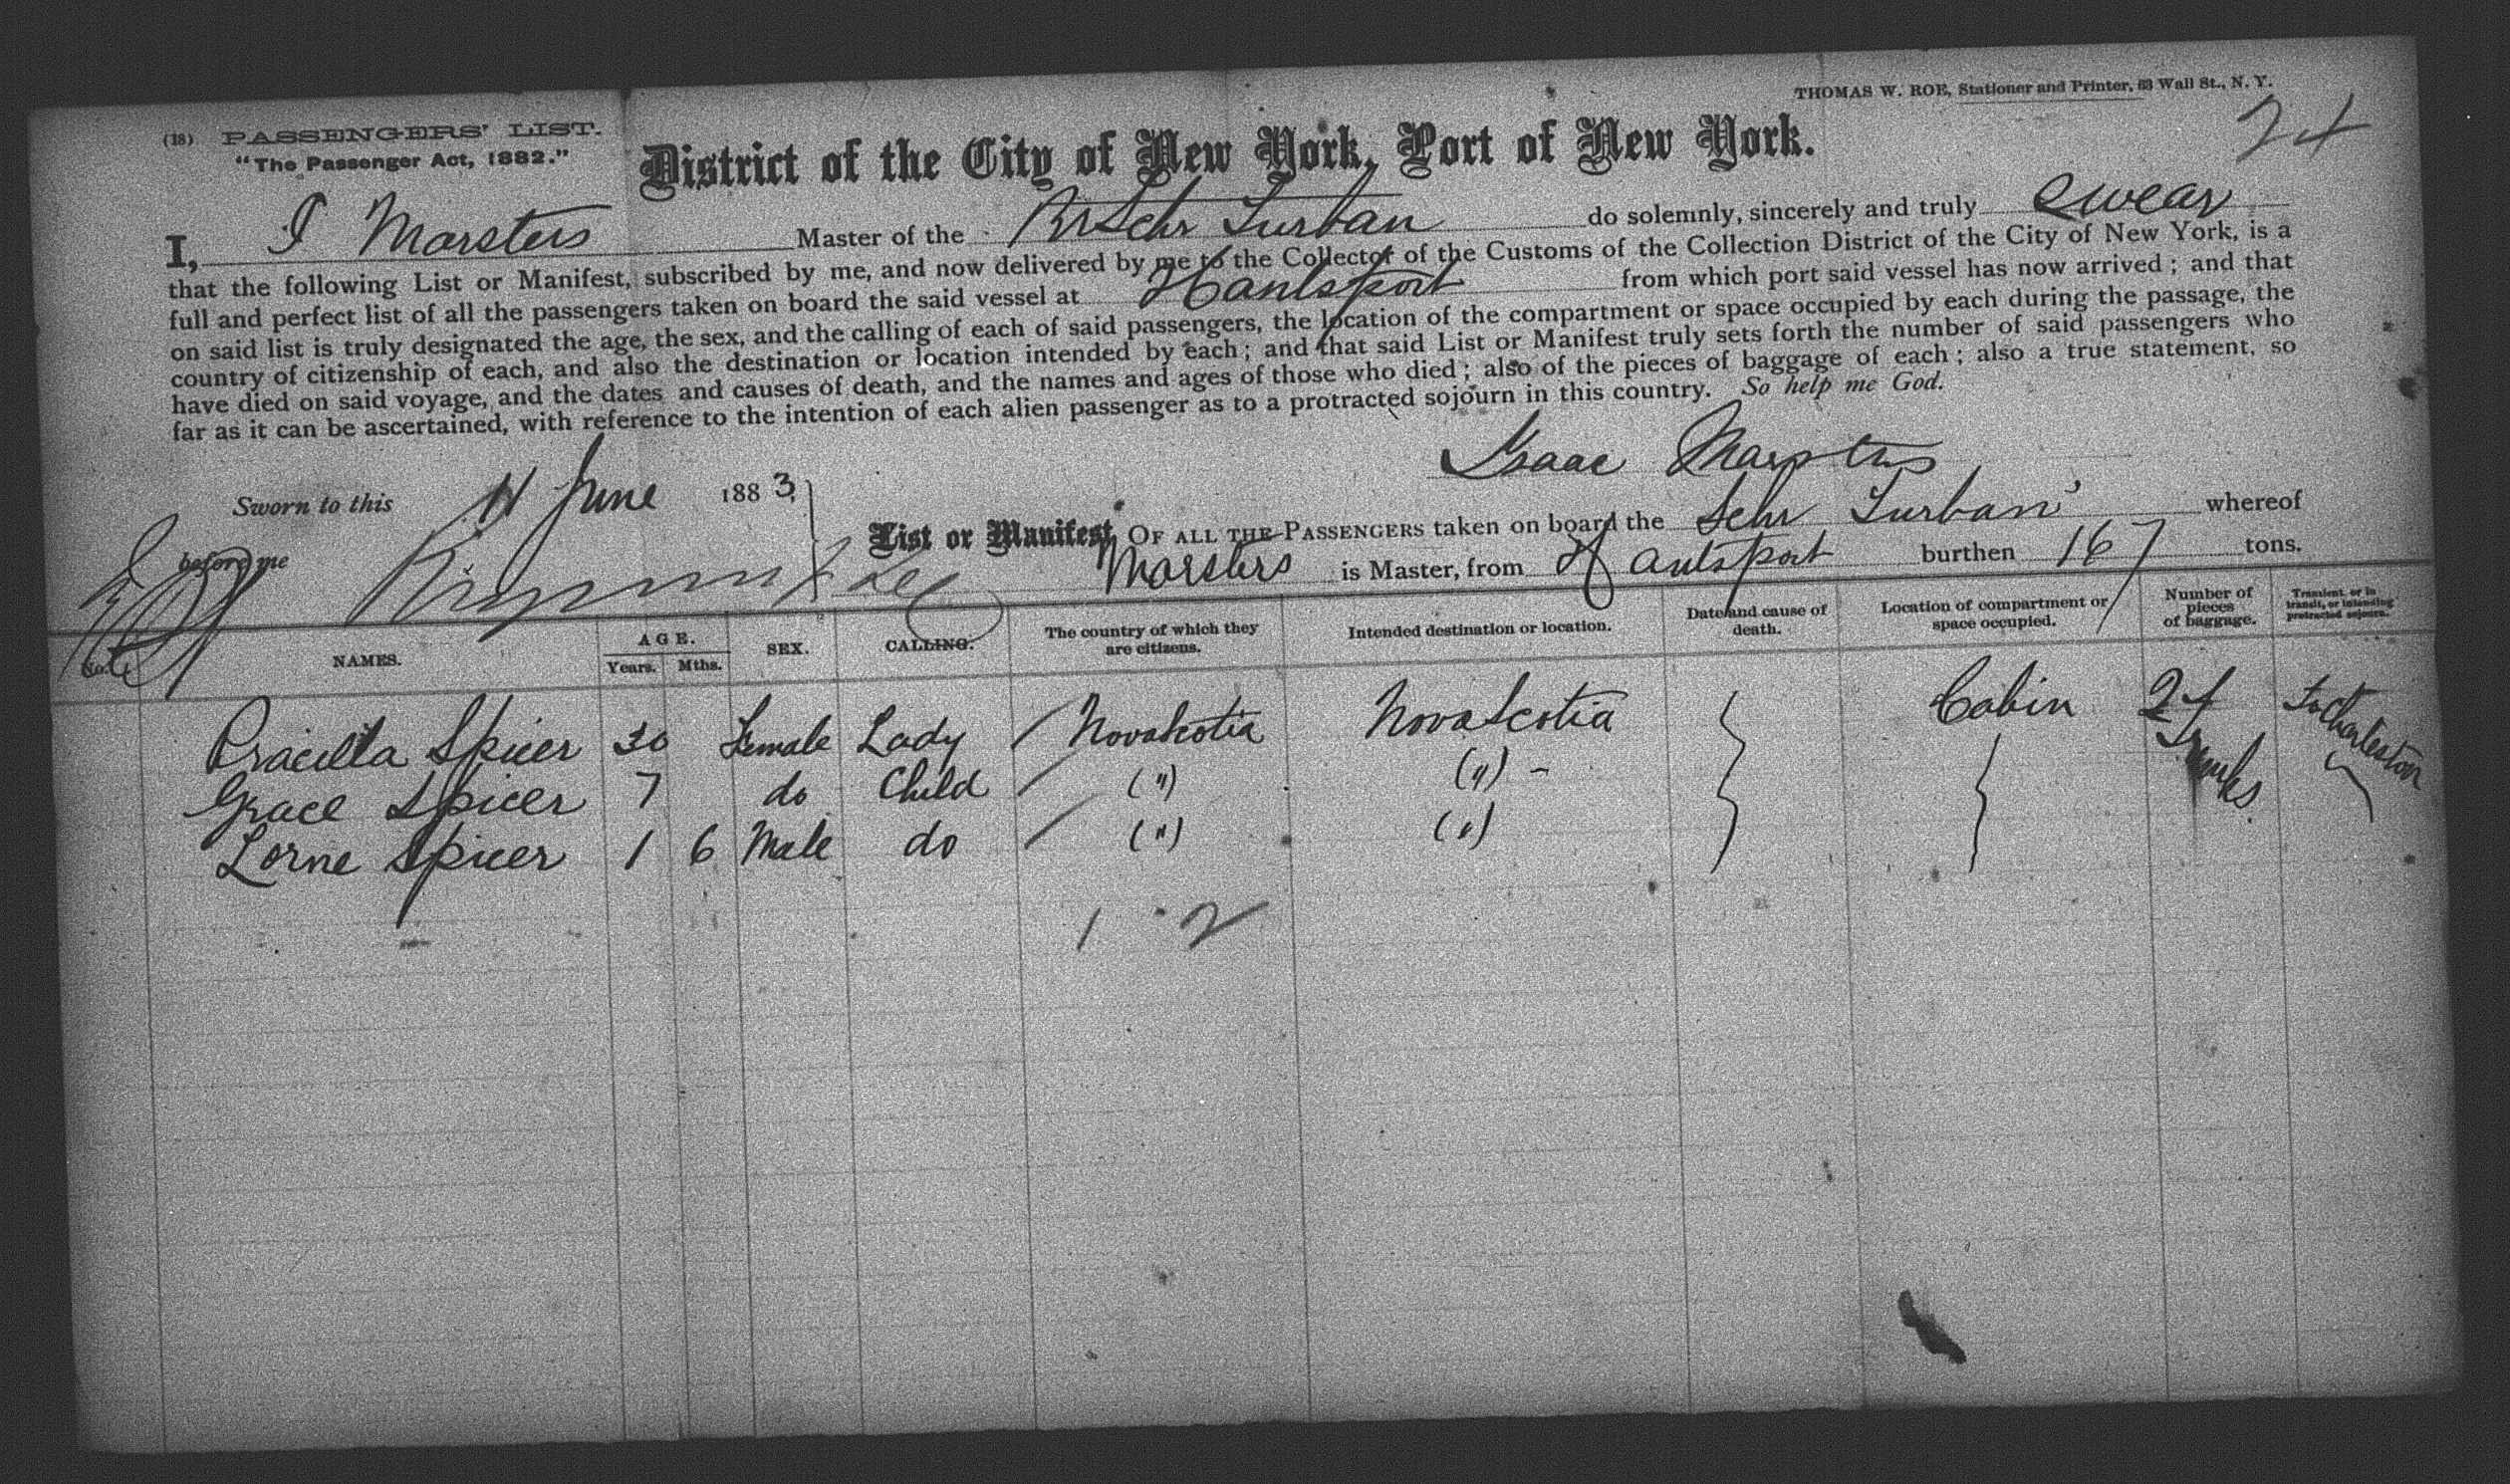 THOMAS W. ROE, Stationer and Printer, 63 Wall St., N. Y.
(18) PASSENGERS' LIST.
"The Passenger Act, 1882."
District of the City of New York, Port of New York.
24
I, I Marsters Master of the Br Schr Turban do solemnly, sincerely and truly swear
that the following List or Manifest, subscribed by me, and now delivered by me to the Collector of the Customs of the Collection District of the City of New York, is a
full and perfect list of all the passengers taken on board the said vessel at Hantsport from which port said vessel has now arrived; and that
on said list is truly designated the age, the sex, and the calling of each of said passengers, the location of the compartment or space occupied by each during the passage, the
country of citizenship of each, and also the destination or location intended by each; and that said List or Manifest truly sets forth the number of said passengers who
have died on said voyage, and the dates and causes of death, and the names and ages of those who died; also of the pieces of baggage of each; also a true statement, so
far as it can be ascertained, with reference to the intention of each alien passenger as to a protracted sojourn in this country. So help me God.
Isaac Marsters
Sworn to this 11 June 1883,
before me
List or Manifest, OF ALL THE PASSENGERS taken on board the Schr Turban whereof
Marsters is Master, from Hantsport burthen 167 tons.
No. NAMES. AGE. Years. Mths. SEX. CALLING. The country of which they are citizens. Intended destination or location. Date and cause of death. Location of compartment or space occupied. Number of pieces of baggage. Transient, or in transit, or intending protracted sojourn.
Pracilla Spicer 30 Female Lady Nova Scotia Nova Scotia Cabin 2 Trunks To Charleston
Grace Spicer 7 do Child (") (") -
Lorne Spicer 1 6 Male do (") (")
1 2